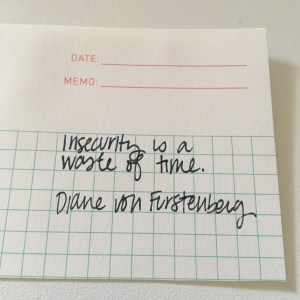 DATE:
MEMO:
Insecurity is a
waste of time.
Diane von Furstenberg